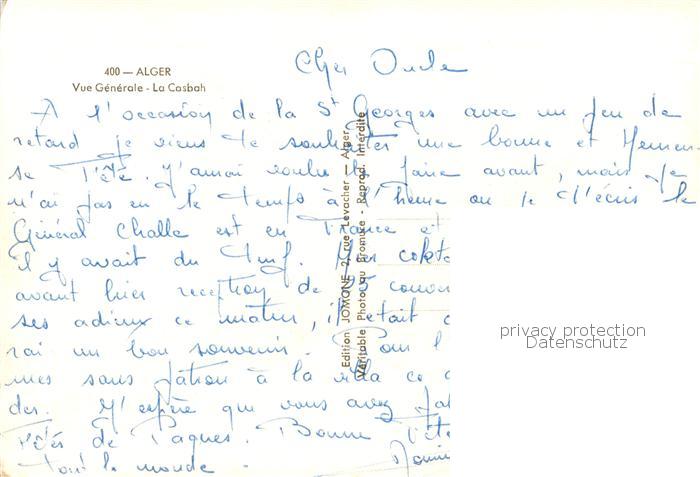 400 — ALGER
Vue Générale - La Casbah
Cher Oncle
A l'occasion de la St Georges avec un peu de
retard je viens te souhaiter une bonne et Heureu-
se Fête. J'aurai voulu le faire avant, mais je
n'ai pas eu le temps à l'heure où je t'écris le
Général Challe est en France et
Il y avait du . Hier cokta
avant hier reception de 25 couver
ses adieux ce matin, il était
rai un bon souvenir. Pour l
mes sans à la villa ce
der. J'espère que vous avez
Fêtes de Paques. Bonne Fête
tout le monde.
Edition JOMONE 2, rue Levacher — Alger
Véritable Photo au Bromure - Reprod. Interdite
privacy protection
Datenschutz